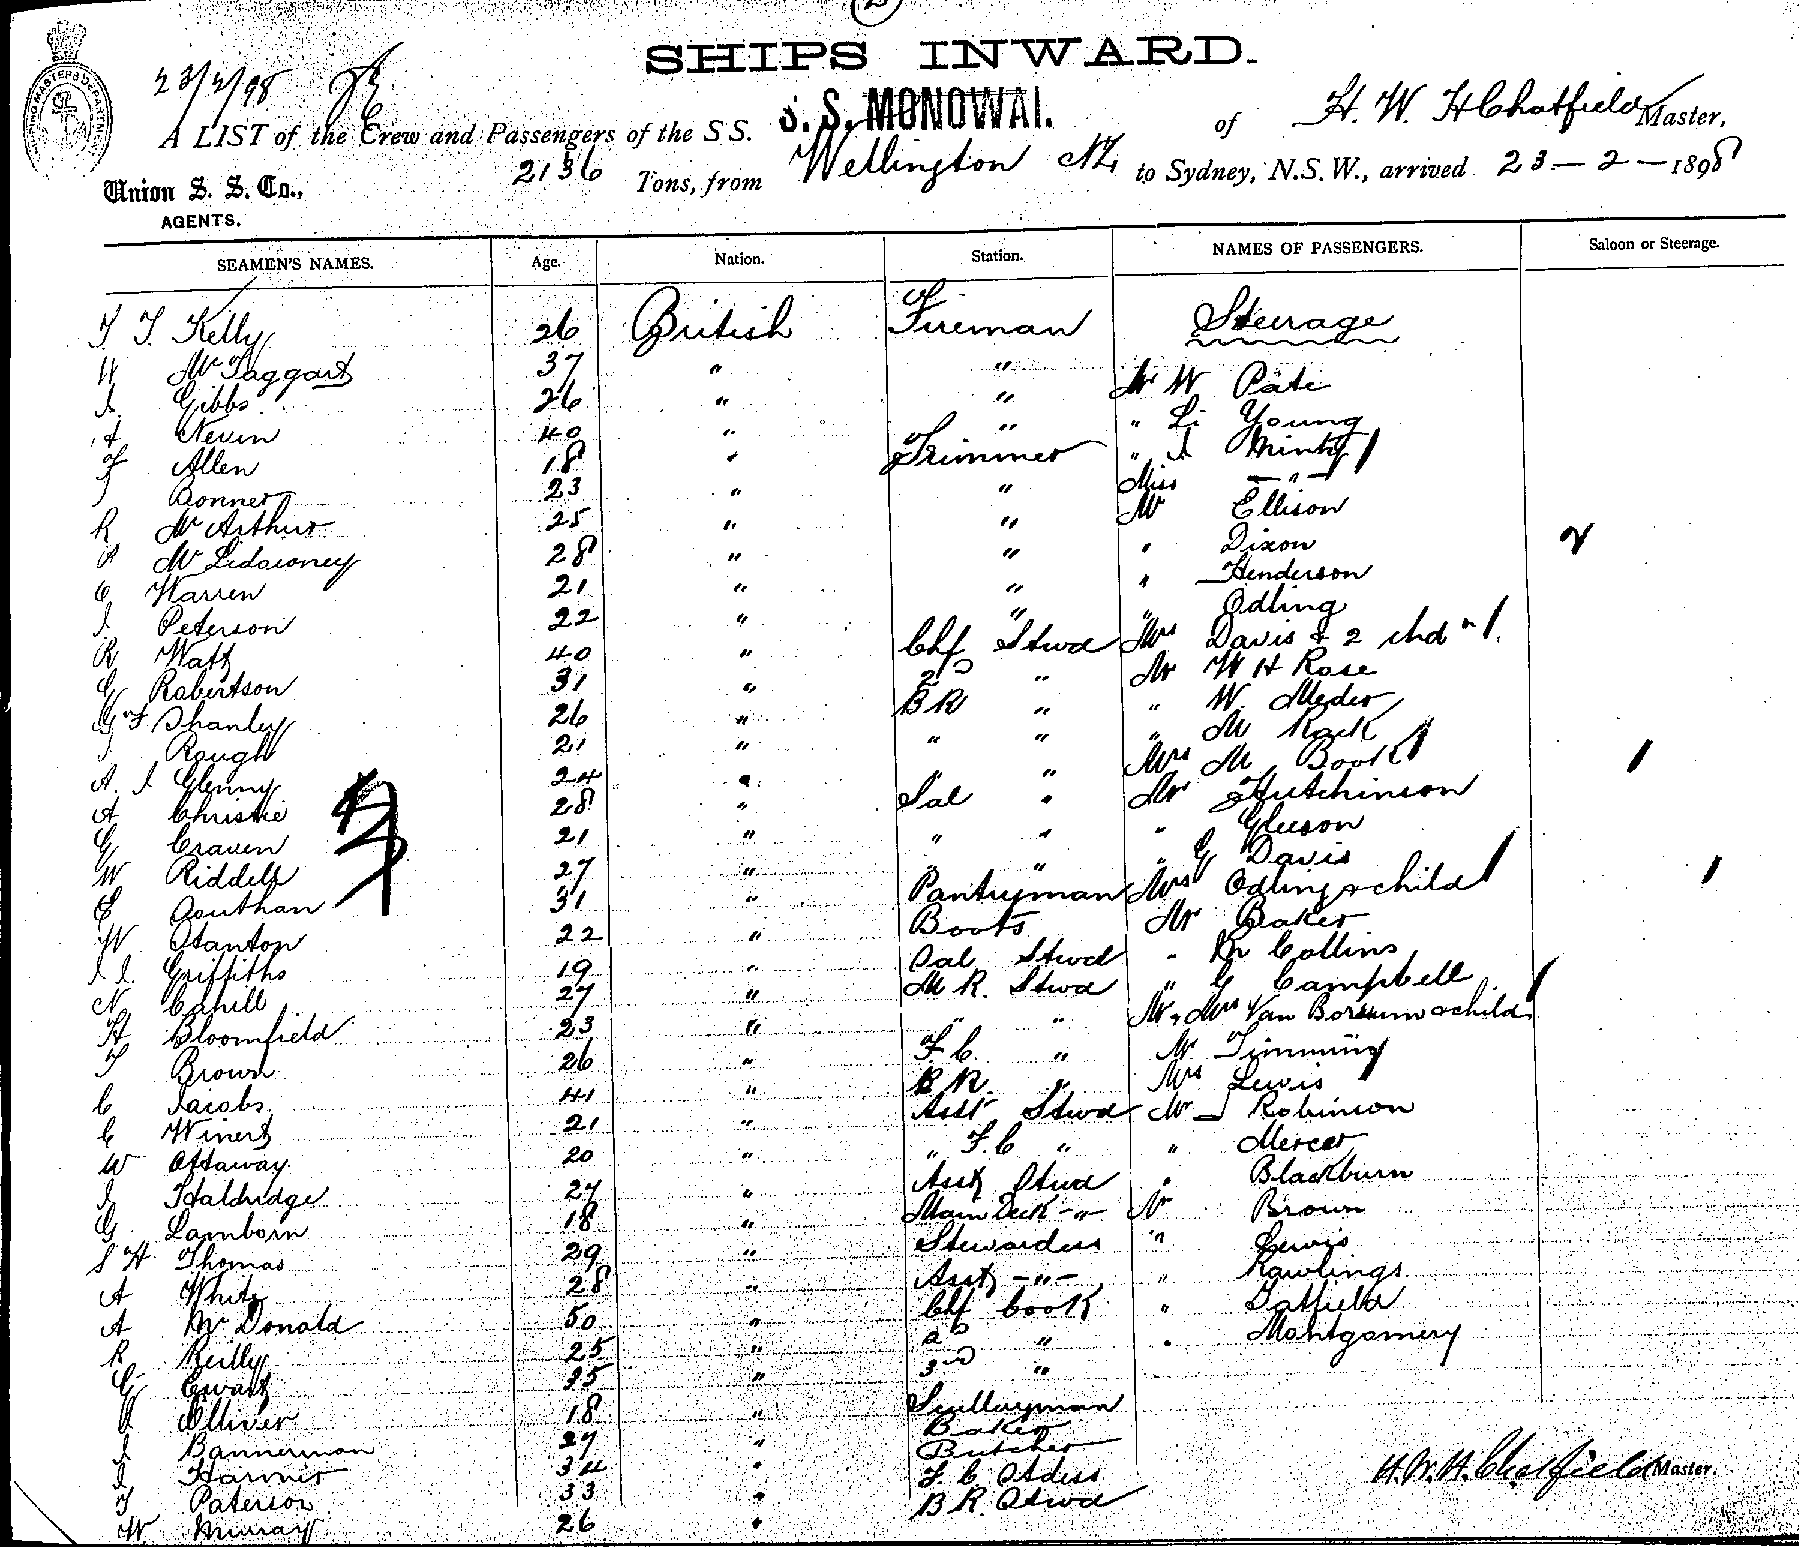 SHIPS INWARD.
23/2/98
A LIST of the Crew and Passengers of the S S. S. S. MONOWAI. of H. W. H Chatfield Master,
Union S. S. Co., AGENTS. 2136 Tons, from Wellington NZ, to Sydney, N.S.W., arrived 23 - 2 - 1898
SEAMEN'S NAMES. Age. Nation. Station. NAMES OF PASSENGERS. Saloon or Steerage.
T J. Kelly 26 British Fireman Steerage
W McTaggart 37 " " Mr W Pate
J. Gibbs 26 " " " Li Young
A Nevin 40 " " " J Minty
F Allen 18 " Trimmer Miss - " -
J Bonner 23 " " Mr Ellison
R McArthur 25 " " " Dixon
Mc 28 " " " Henderson
C Warren 21 " " " Odling
J. Peterson 22 " " Mrs Davis & 2 chdn
R Watt 40 " Chf Stwd Mr W H Rose
G Robertson 31 " 2D " " W. Meder
G F Shanley 26 " B R " " M Rock
J Rough 21 " " " Mrs M Book
A. J Glenny 24 " " Mr Hutchinson
A Christie 28 " Sal " " Gleeson
G Craven 21 " " " " G Davis
W Riddell 27 " " Mrs Odling & child
E Southan 31 " Pantryman Mr Baker
W Stanton 22 " Boots " Collins
J. J. Griffiths 19 " Sal Stwd " G Campbell
N Cahill 27 " M R. Stwd Mr & Mrs Van Borssum & child
H Bloomfield 23 " " " Mr Timming
T Brown 26 " F. C. " Mrs Lewis
C Jacobs 41 " B R. " Mr J Robinson
C Winert 21 " Asst Stwd " Mercer
W Ottaway 20 " " F. C " " Blackburn
J Haldridge 27 " Asst Stwd Mr Brown
G Lamborn 18 " Main Deck - " - " Lewis
S H Thomas 29 " Stewardess " Rawlings
A White 28 " Asst - " - " Tatfield
A McDonald 50 " Chf Cook " Montgomery
R Reilly 25 " 2D "
G Ewart 25 " 3rd "
Olliver 18 " Sculleryman
J Bannerman 27 " Baker
J Harmer 34 " Butcher
T Paterson 33 " F. C. Stdss
W Murray 26 " B R. Stwd
H. W. H. Chatfield Master.